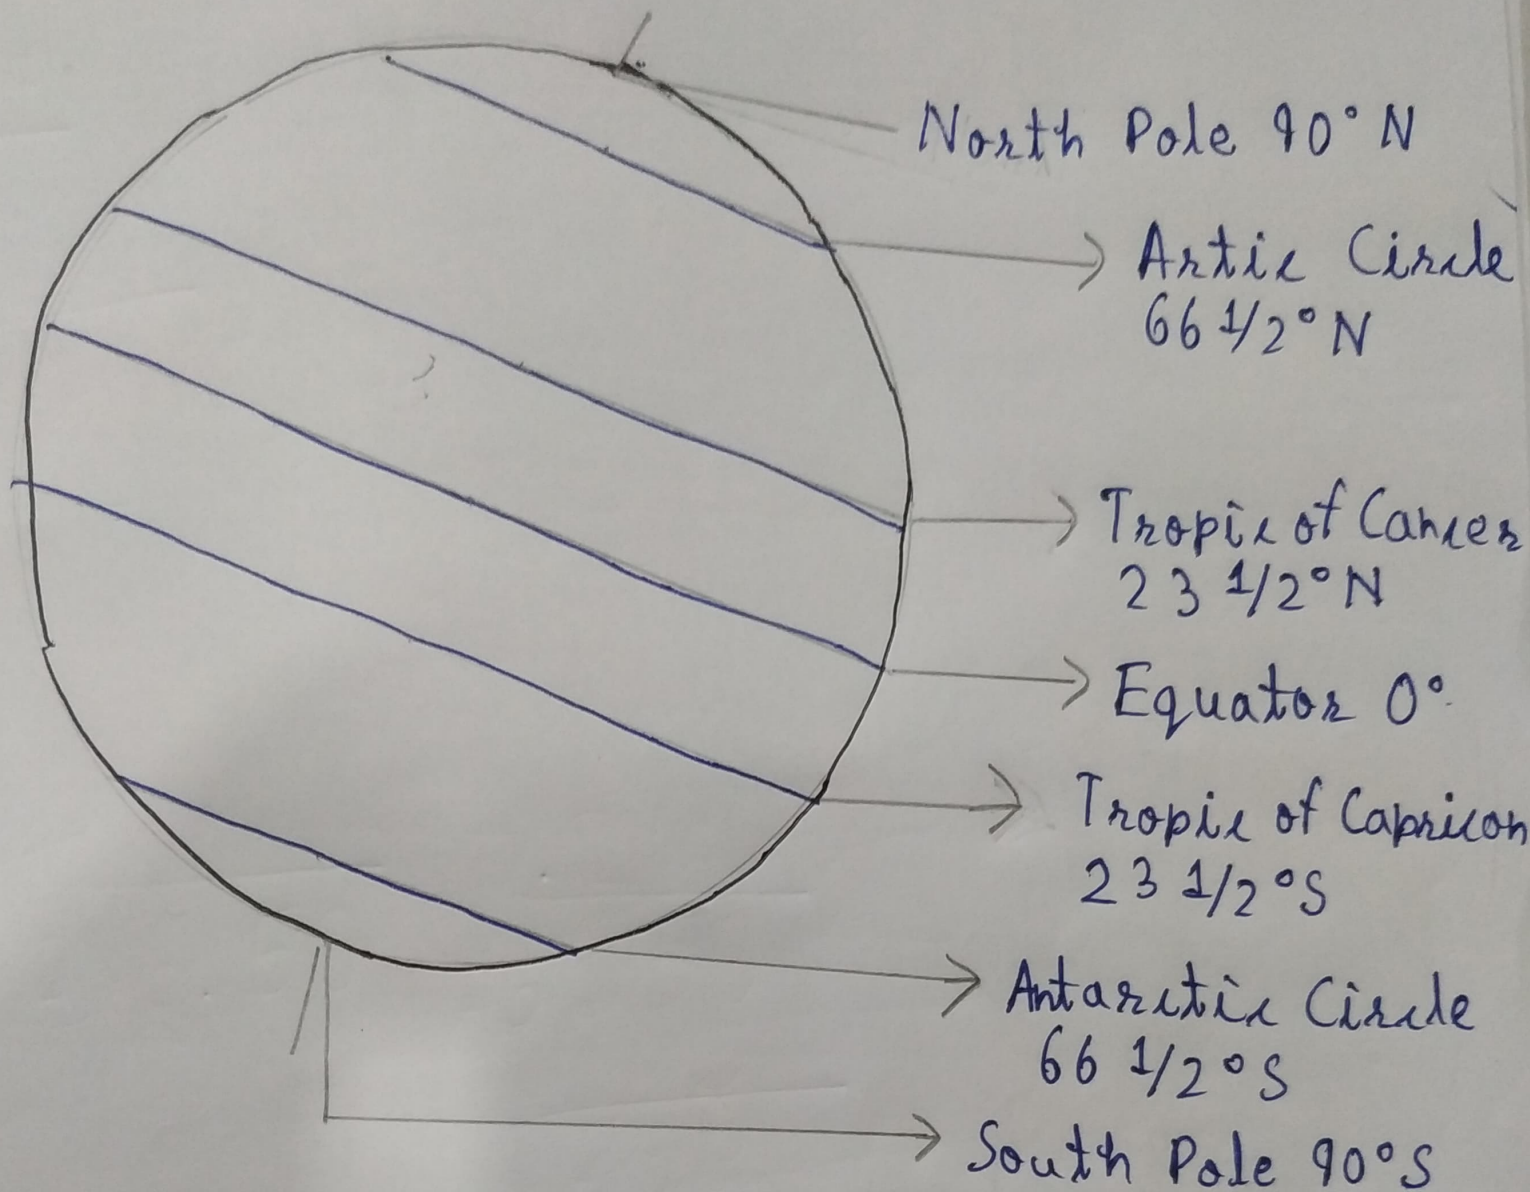 North Pole 90° N
Artic Circle
66 1/2° N
Tropic of Cancer
23 1/2° N
Equator 0°
Tropic of Capricon
23 1/2° S
Antarctic Circle
66 1/2° S
South Pole 90° S